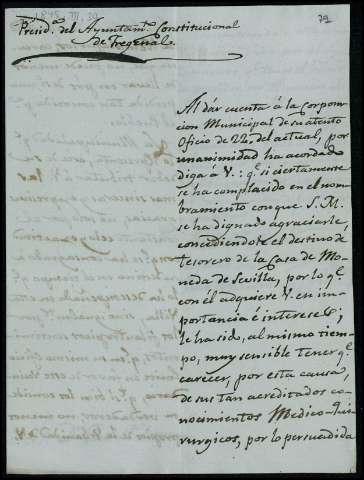 79
Presid.ª del Ayuntam.º Constitucional
de Fregenal.
Al dar cuenta á la Corpora-
cion Municipal de su atento
Oficio de 22, del actual, por
unanimidad ha acordado
diga á V.: q.e si ciertamente
se ha complacido en el nom-
bramiento con que S. M.
se ha dignado agraciarle,
concediendole el destino de
tesorero de la Casa de Mo-
neda de Sevilla, por lo q.e
con él adquiere V. en im-
portancia é intereses;
le ha sido, al mismo tiem-
po, muy sensible tener q.e
carecer, por esta causa,
de sus tan acreditados co-
nocimientos Medico-Qui-
rurgicos, por lo persuadida